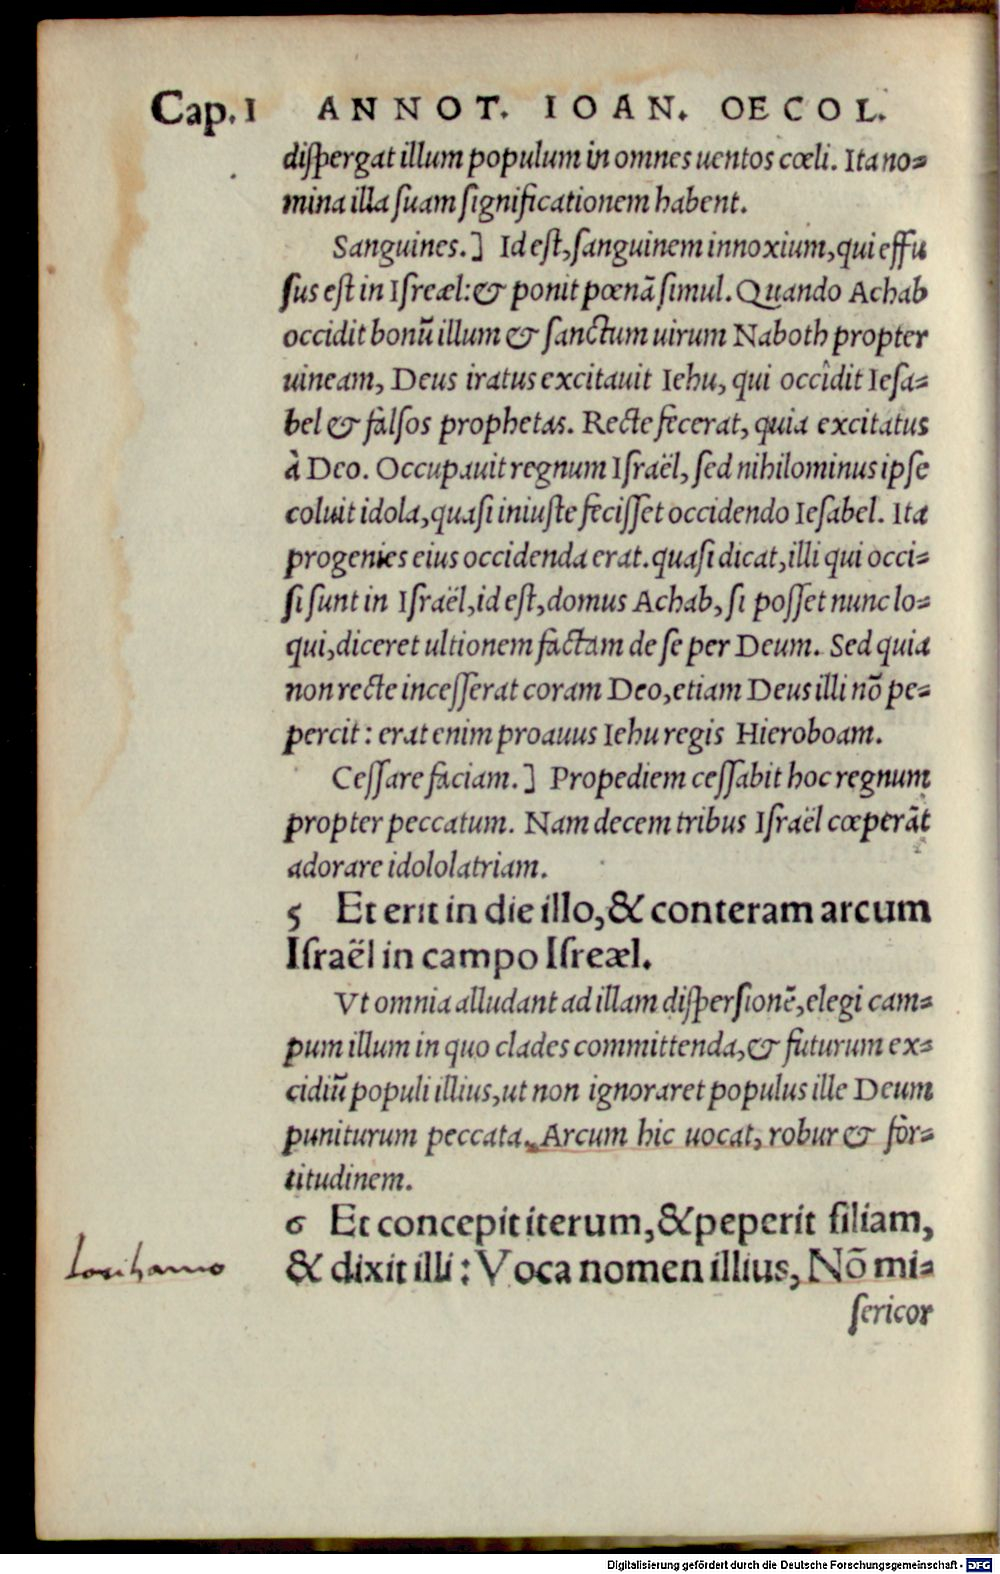 Cap. I ANNOT. IOAN. OECOL.
diſpergat illum populum in omnes uentos cœli. Ita no⸗
mina illa ſuam ſignificationem habent.
Sanguines.] Id eſt, ſanguinem innoxium, qui effu
ſus eſt in Iſreæl: & ponit pœnã ſimul. Quando Achab
occidit bonũ illum & ſanctum uirum Naboth propter
uineam, Deus iratus excitauit Iehu, qui occîdit Ieſa⸗
bel & falſos prophetas. Recte fecerat, quia excitatus
à Deo. Occupauit regnum Iſraël, ſed nihilominus ipſe
coluit idola, quaſi iniuſte feciſſet occidendo Ieſabel. Ita
progenies eius occidenda erat. quaſi dicat, illi qui occi⸗
ſi ſunt in Iſraël, id eſt, domus Achab, ſi poſſet nunc lo⸗
qui, diceret ultionem factam de ſe per Deum. Sed quia
non recte inceſſerat coram Deo, etiam Deus illi nõ pe⸗
percit: erat enim proauus Iehu regis Hieroboam.
Ceſſare faciam.] Propediem ceſſabit hoc regnum
propter peccatum. Nam decem tribus Iſraël cœperãt
adorare idololatriam.
5 Et erit in die illo, & conteram arcum
Iſraël in campo Iſreæl.
Vt omnia alludant ad illam diſperſionẽ, elegi cam⸗
pum illum in quo clades committenda, & futurum ex⸗
cidiũ populi illius, ut non ignoraret populus ille Deum
puniturum peccata. Arcum hic uocat, robur & for⸗
titudinem.
6 Et concepit iterum, & peperit filiam,
& dixit illi: Voca nomen illius, Nõ mi⸗
ſericor
Digitalisierung gefördert durch die Deutsche Forschungsgemeinschaft - DFG